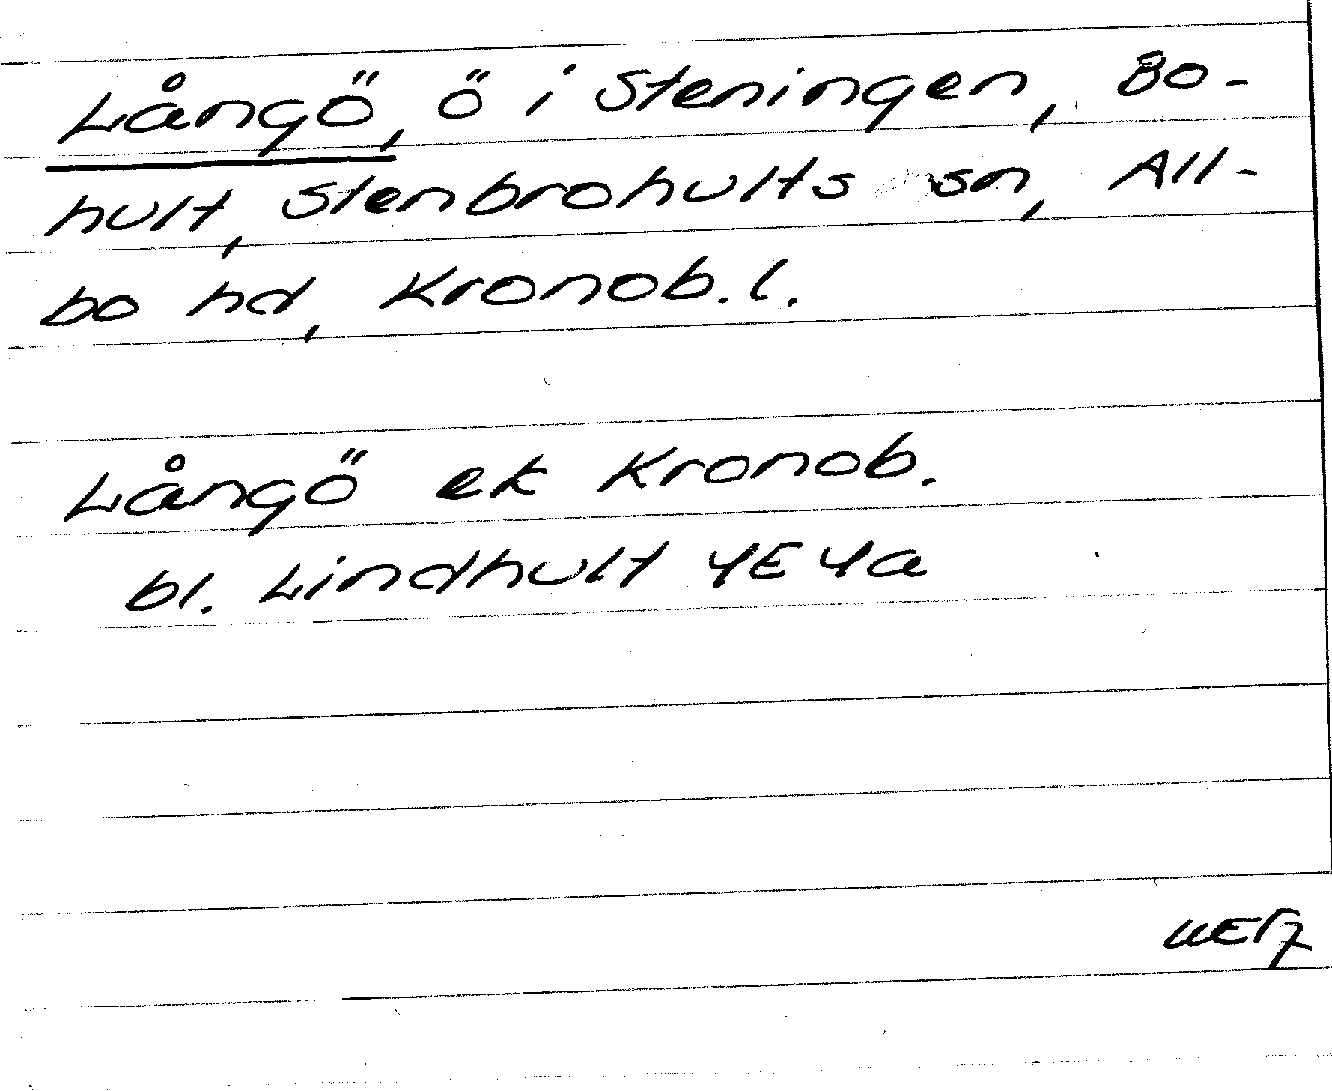 Långö, ö i Steningen, Bo-
hult, Stenbrohults sn, All-
bo hd, Kronob.l.
Långö ek Kronob.
bl. Lindhult 4E4a